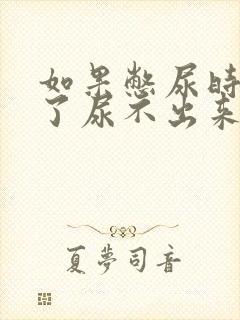 如果憋尿时
了尿不出来
夏夢司音